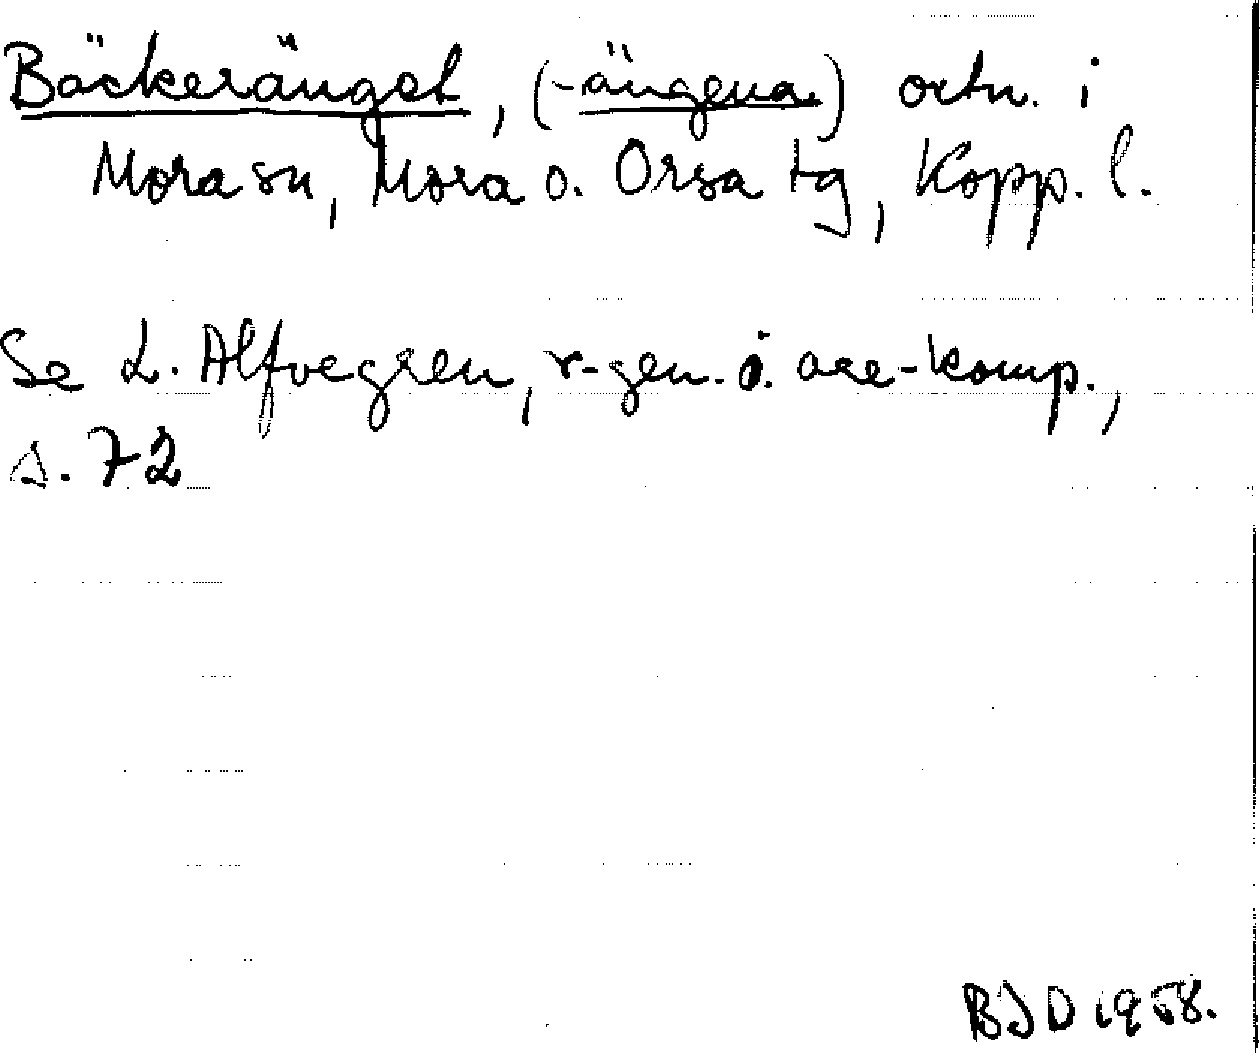 Bäckeränget, (-ängena) ortn. i
Mora sn, Mora o. Orsa tg, Kopp. l.
Se L. Alfvegren, r-gen. i ase-komp.,
s. 72
BJD 1958.